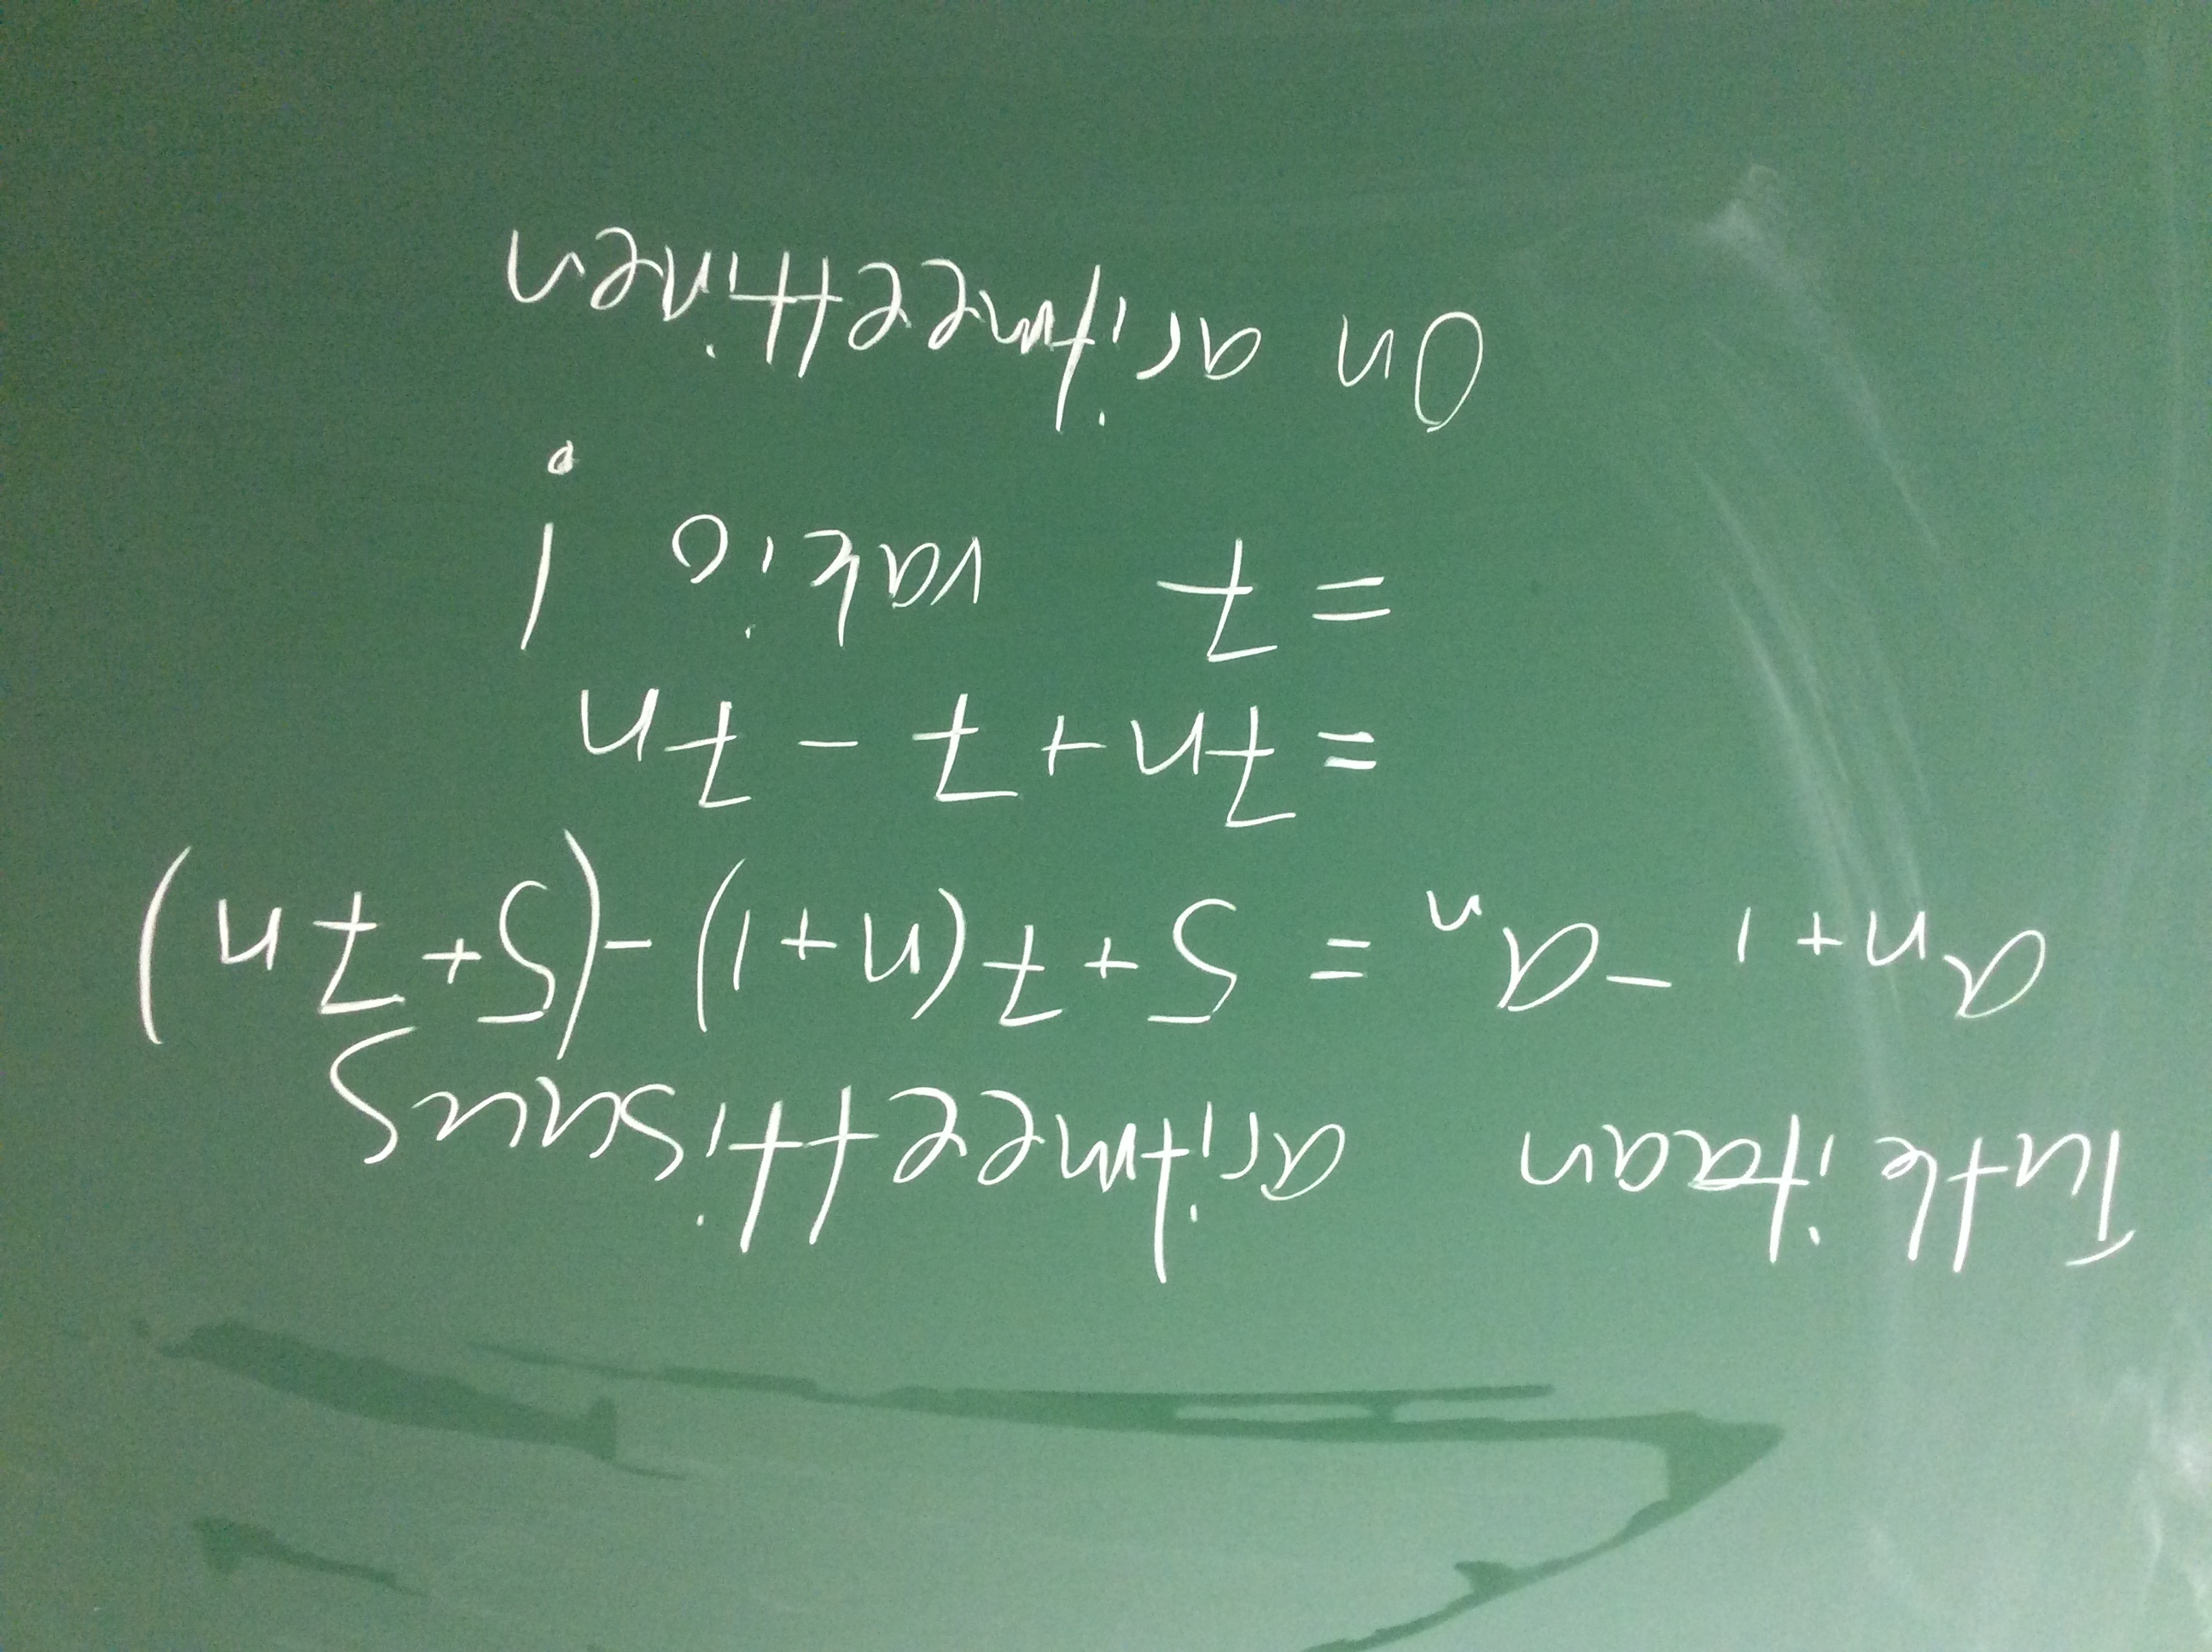 Tutkitaan aritmeettisuus
aₙ₊₁ - aₙ = 5 + 7(n+1) - (5 + 7n)
= 7n + 7 - 7n
= 7 vakio !
On aritmeettinen